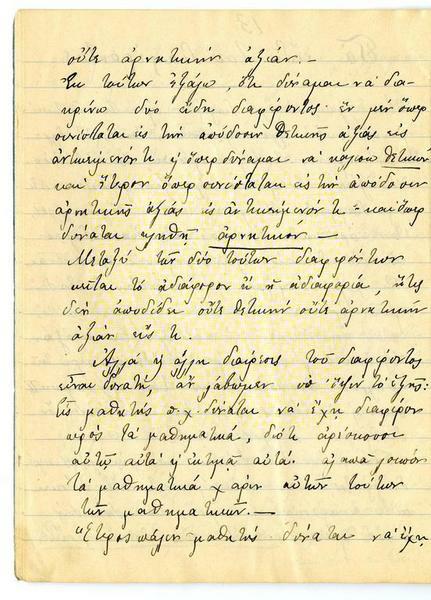 οὔτε ἀρνητικὴν ἀξίαν. —
Ἐκ τούτων ἐξάγω, ὅτι δύναμαι νὰ δια-
κρίνω δύο εἴδη διαφέροντος· ἓν μὲν ὅπερ
συνίσταται εἰς τὴν ἀπόδοσιν θετικῆς ἀξίας εἰς
ἀντικείμενόν τι ἢ ὅπερ δύναμαι νὰ καλέσω θετικὸν
καὶ ἕτερον ὅπερ συνίσταται εἰς τὴν ἀπόδοσιν
ἀρνητικῆς ἀξίας εἰς ἀντικείμενόν τι - καὶ ὅπερ
δύναται κληθῆ ἀρνητικόν —
Μεταξὺ τῶν δύο τούτων διαφερόντων
κεῖται τὸ ἀδιάφορον ἢ ἡ ἀδιαφορία, ἥτις
δὲν ἀποδίδει οὔτε θετικὴν οὔτε ἀρνητικὴν
ἀξίαν εἴς τι.
Ἀλλὰ κ ἄλλη διαίρεσις τοῦ διαφέροντος
εἶναι δυνατή, ἂν λάβωμεν ὑπ' ὄψιν τὸ ἑξῆς:
εἷς μαθητὴς π.χ. δύναται νὰ ἔχῃ διαφέρον
πρὸς τὰ μαθηματικά, διότι ἀρέσκουσι
αὐτῷ αὐτὰ ἢ ἐκτιμᾷ αὐτά. ἀγαπᾷ λοιπὸν
τὰ μαθηματικὰ χάριν αὐτῶν τούτων
τῶν μαθηματικῶν. —
Ἕτερος πάλιν μαθητὴς δύναται νὰ ἔχῃ